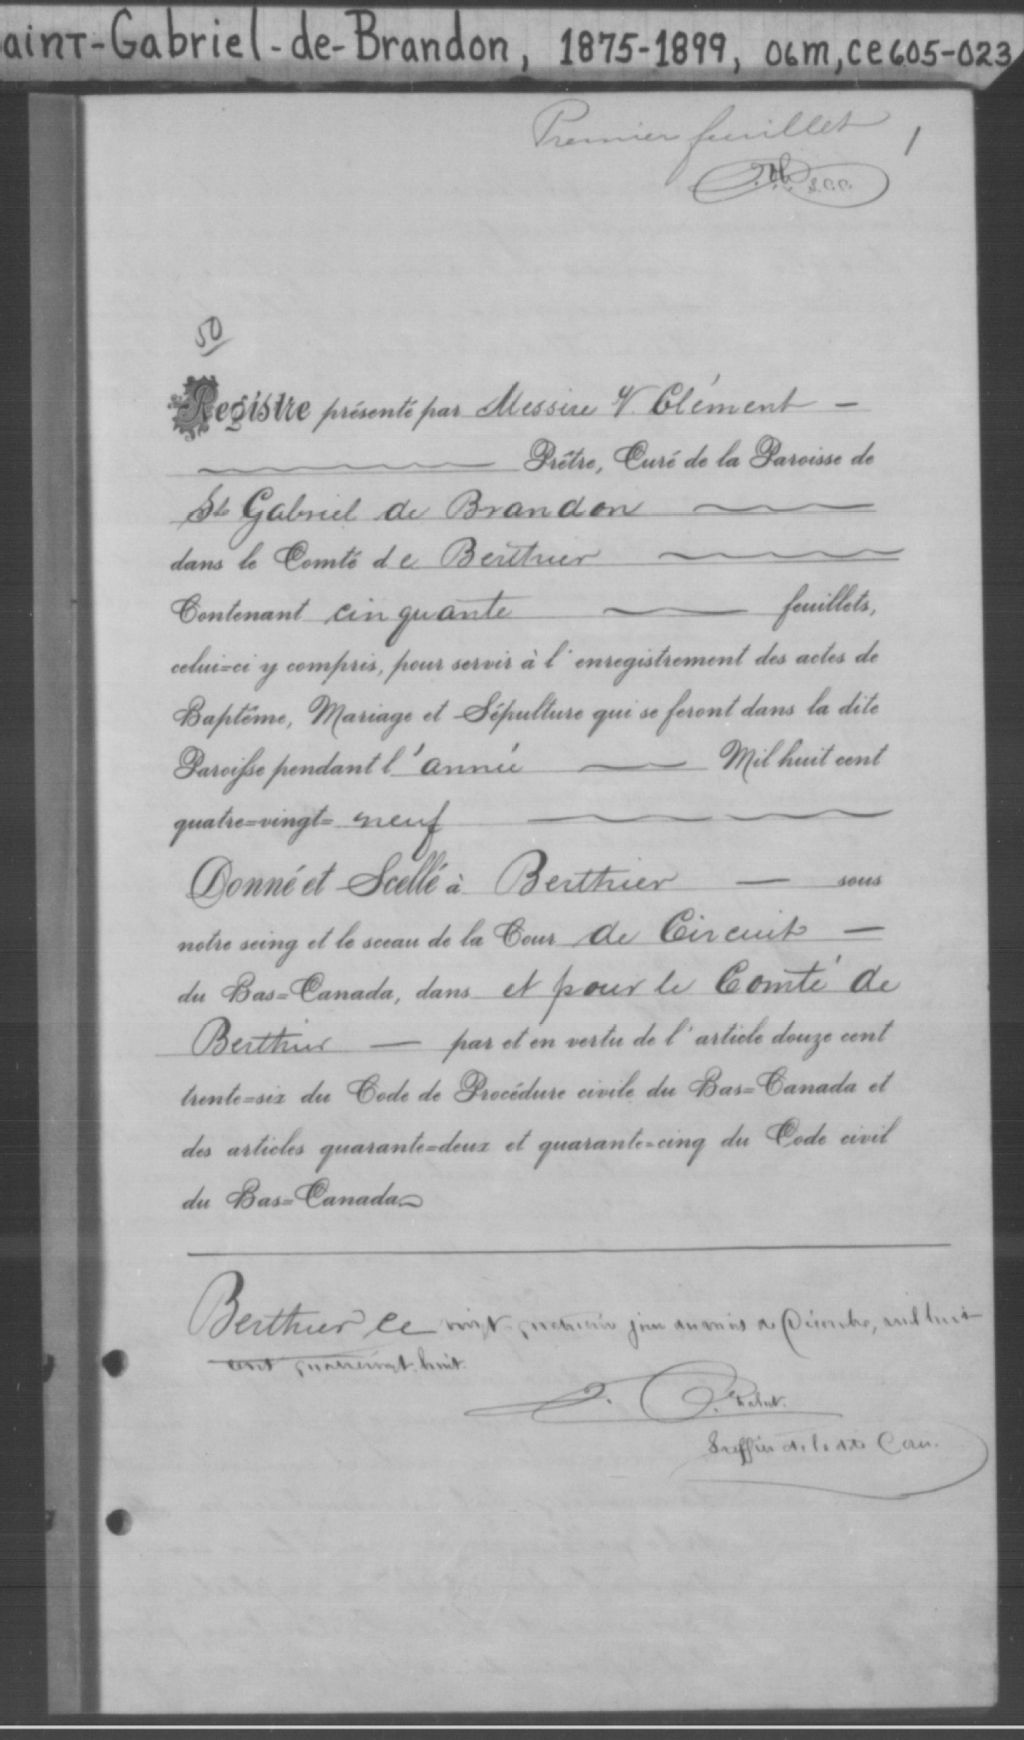 aint-Gabriel-de-Brandon, 1875-1899, 06m, ce605-023
Premier feuillet 1
50
Registre présenté par Messire V. Clément —
Prêtre, Curé de la Paroisse de
St Gabriel de Brandon
dans le Comté de Berthier
Contenant cinquante feuillets,
celui=ci y compris, pour servir à l'enregistrement des actes de
Baptême, Mariage et Sépulture qui se feront dans la dite
Paroisse pendant l'année — Mil huit cent
quatre=vingt= neuf
Donné et Scellé à Berthier — sous
notre seing et le sceau de la Cour de Circuit —
du Bas=Canada, dans et pour le Comté de
Berthier — par et en vertu de l'article douze cent
trente=six du Code de Procédure civile du Bas=Canada et
des articles quarante=deux et quarante=cinq du Code civil
du Bas=Canada
Berthier ce vingt jour du mois de Décembre, mil huit
cent quatrevingt huit.
Greffier de la dte Cour.